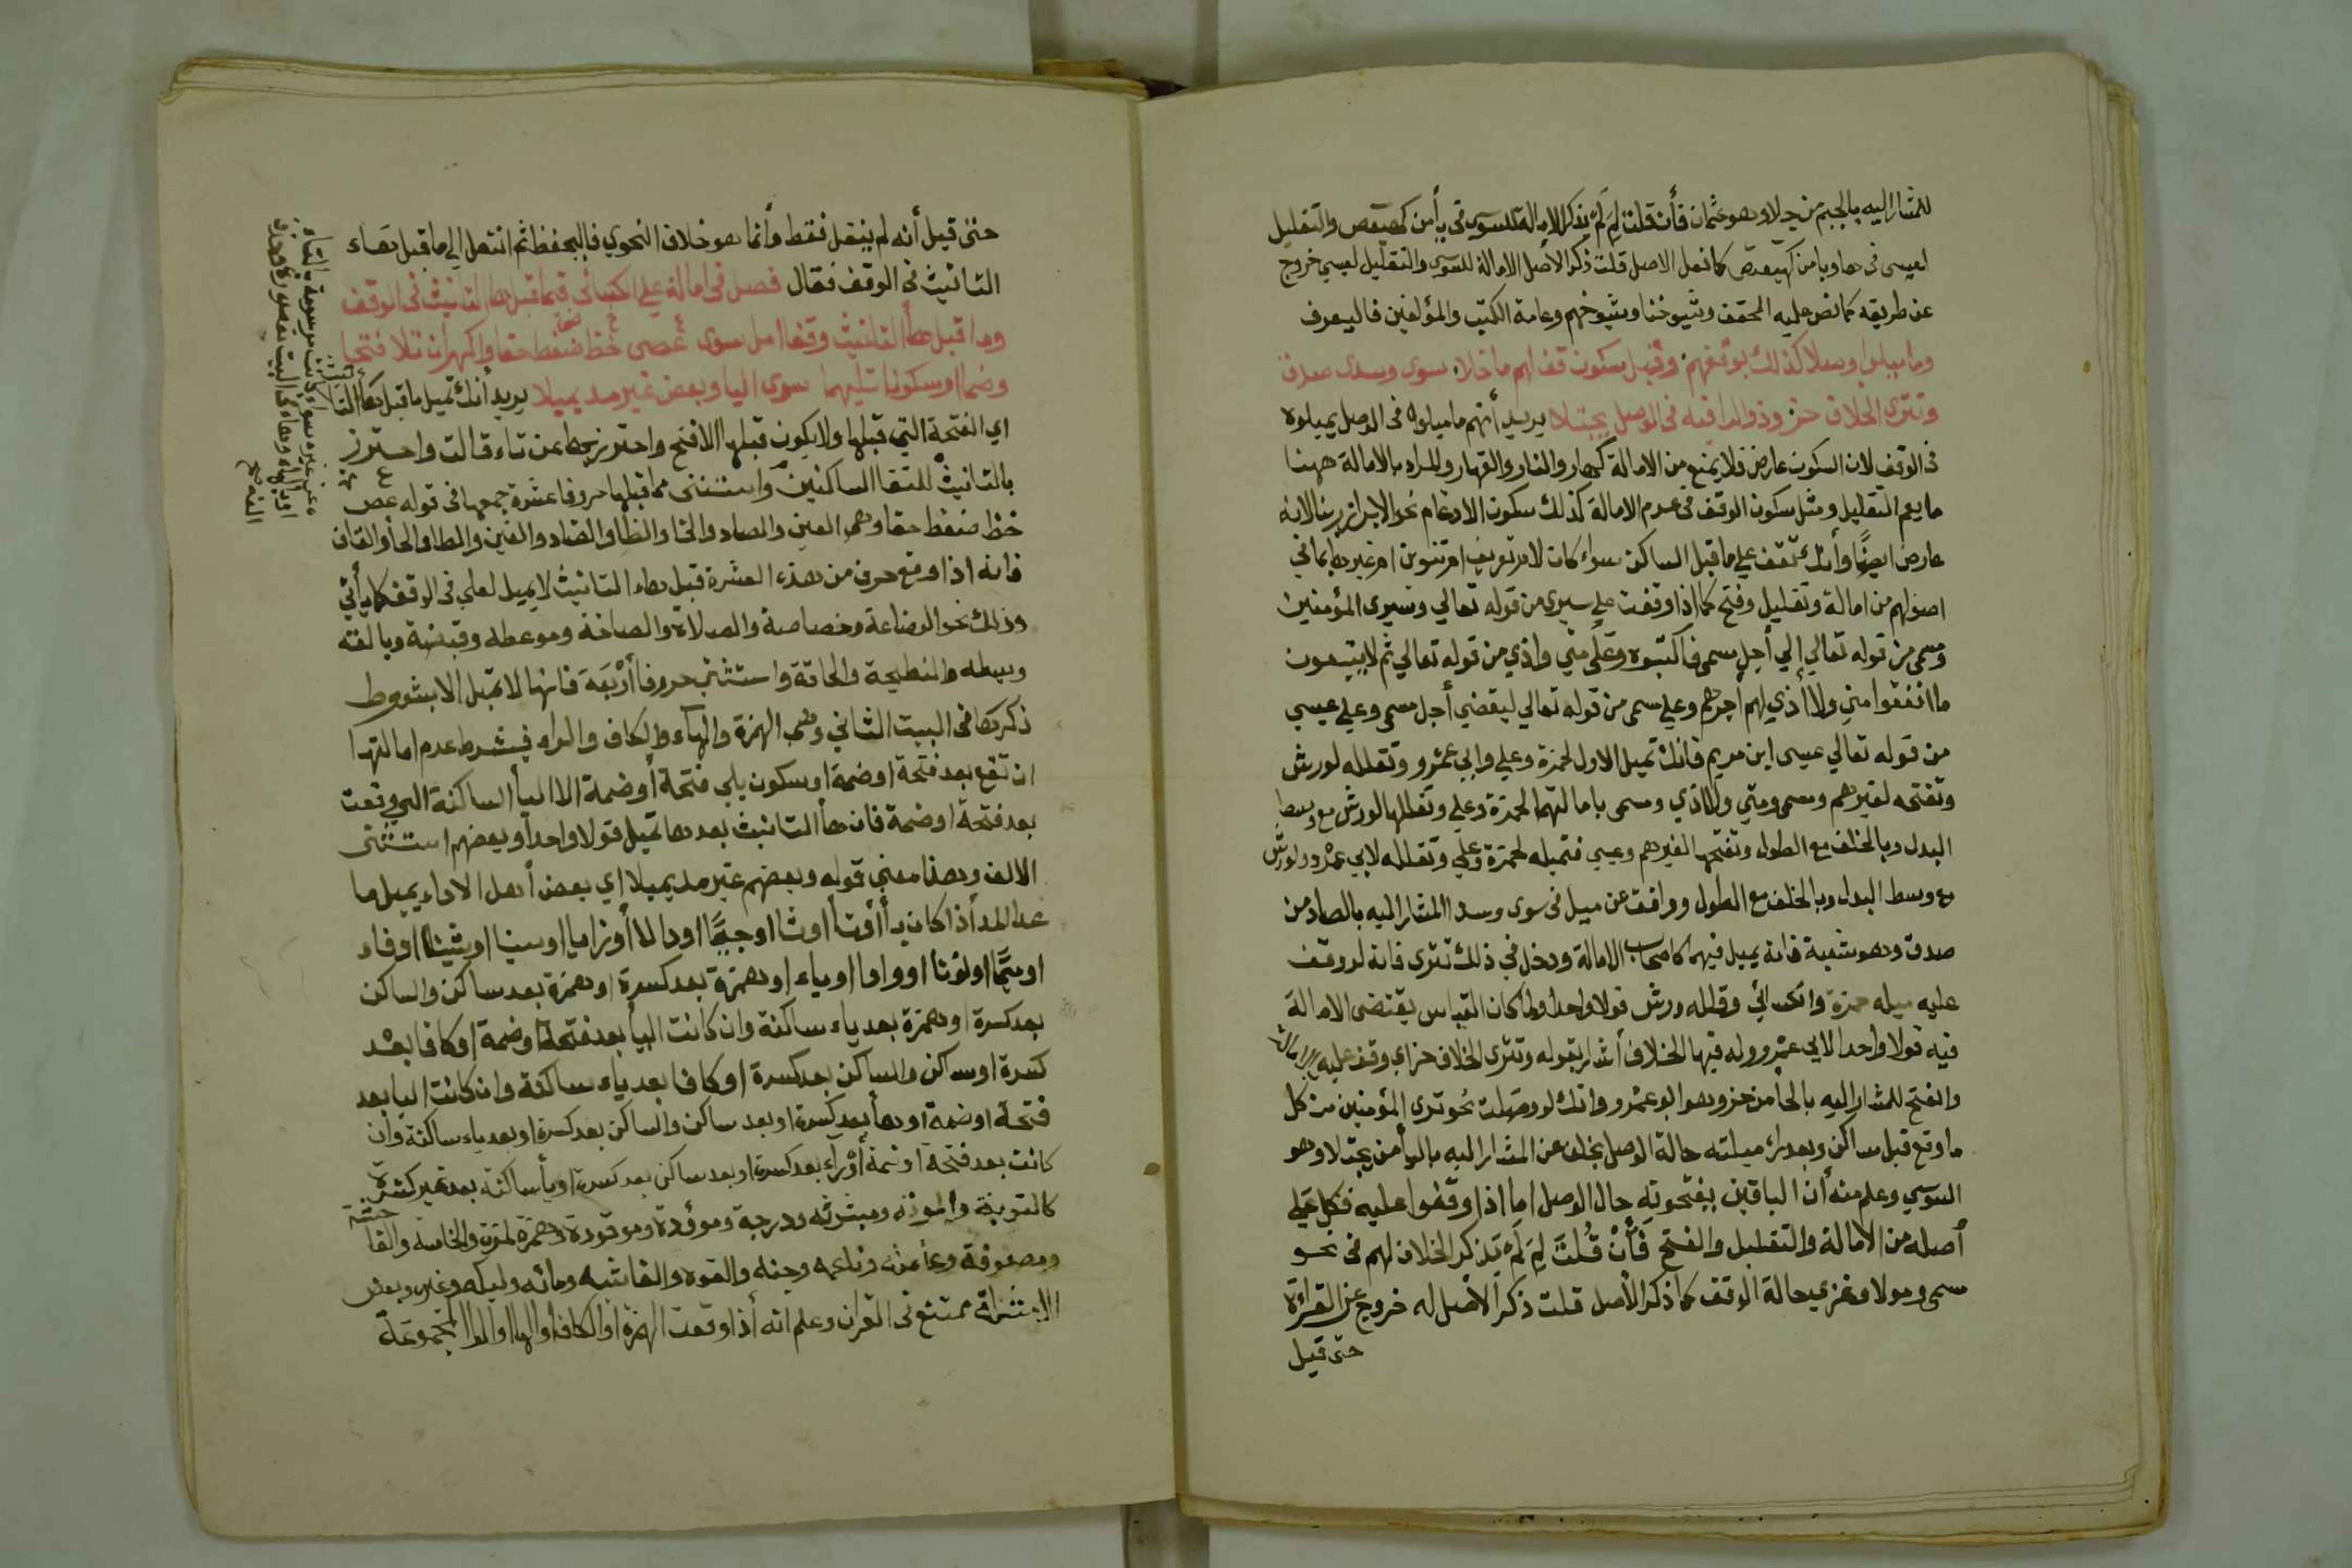 للمشار اليه بالجيم من جلا وهو عثمان فأن قلت لِمَ لَمْ يذكر الامالة للسوسي في يا من كهيعص والتقليل
لعيسى في ها ويا من كهيعص كما نقل الاصل قلت ذكر الأصل الامالة للسوسي والتقليل لعيسي خروج
عن طريقه كما نص عليه المحقق وشيوخنا وشيوخهم وعامة الكتب والمؤلفين فاليعرف
وما ميلوا وصلا كذلك بوقفهم وقبل سكون قف لهم ما خلا سوى وسدى صدق
وتترى الخلاف حز وذو الرا فيه في الوصل يجتلا يريد أنهم ما ميلوه في الوصل يميلوه
في الوقف لان السكون عارض فلا يمنع من الامالة كهار والنار والقهار والمراد بالامالة ههنا
ما يعم التقليل ومثل سكون الوقف في عدم الامالة كذلك سكون الادغام نحو الابرار ربنا لانه
عارض ايضًا وأنك تقف على ما قبل الساكن سواء كان لام تعريف او تنوين او غيرهما بما في
اصولهم من امالة وتقليل وفتح كما اذا وقفت على سيرى من قوله تعالي وسيرى المؤمنين
ومسمى من قوله تعالي إلي أجل مسمى فاكتبوه وعلى منّي واذي من قوله تعالي ثم لا يتبعون
ما انفقوا منًّ ولا أذي لهم أجرهم وعلي مسمى من قوله تعالي ليقضي أجل مسمى وعلي عيسي
من قوله تعالي عيسى ابن مريم فانك تميل الاول لحمزة وعلي وابي عمرو وتقلله لورش
وتفتحه لغيرهم ومسمى ومتي والاذي ومسمى بامالتهما لحمزة وعلي وتقللها لورش مع وسط
البدل وبالخلف مع الطول وتفتحها لغيرهم وعيسي فتميله لحمزة وعلي وتقلله لابي عمرو ولورش
مع وسط البدل وبالخلف مع الطول ووافق عن ميل في سوى وسدا المشار اليه بالصاد من
صدق وهو شعبة فانه يميل فيهما كاصحاب الامالة ودخل في ذلك تترى فانه لو وقف
عليه ميله حمزة والكسائي وقلله ورش قولا واحدا ولما كان القياس يقتضى الامالة
فيه قولا واحدا لابي عمرو وله فيها الخلاف أشار بقوله وتترى الخلاف حز اي وقف عليه بالامالة
والفتح للمشار اليه بالحا من حز وهو ابو عمرو وانك لو وصلت نحو ترى المؤمنين من كل
ما وقع قبل ساكن وبعد راء ميلته حالة الوصل بخلف عن المشار اليه باليا من يجتلا وهو
السوسي وعلم منه أن الباقين يفتحونه حال الوصل اما اذا وقفوا عليه فكل علي
أصله من الامالة والتقليل والفتح فَأنْ قُلتَ لِمَ لَمْ يَذكر الخلاف لهم في نحو
مسمى ومولا وغزي حالة الوقف كما ذكر الأصل قلت ذكر الأصل له خروج عن القراءة
حتى قيل
حتى قيل أنه لم ينقل فقط وأنما هو خلاف النحوي فاليحفظ ثم انتقل الي ما قبل هاء
التانيث في الوقف فقال فصل في امالة علي الكسائي فيما قبل هاء التانيث في الوقف
وما قبل هاء التانيث وقفا امل سوى عصى خظ ضغط حقا واكهران تلا فتحا
وضما او سكونا تليهما سوى اليا وبعض غير مد يميلا يريد أنك تميل ما قبل هاء التانيث
اي الفتحة التي قبلها ولا يكون قبلها الا فتح واحترز بها عن تاء قالت واحترز
بالتانيث للتقا الساكنين واستثنى مما قبلها حروفا عشرة جمعها في قوله عص
خظ ضغط حقا وهي العين والصاد والخا والظا والضاد والغين والطا والحا والقاف
فانه اذا وقع حرف من هذه العشرة قبل هاء التانيث لا يميل لعلي في الوقف كما يأتي
وذلك نحو البضاعة وخصاصة والصلاة والصاخة وموعظه وقبضة وبالغه
وبسطه والنطيحة والحاقة واستثني حروفا أربَعَة فانها لا تميل الا بشروط
ذكرها في البيت الثاني وهي الهمزة والهآء والكاف والراء فيشرط عدم امالتها
ان تقع بعد فتحة او ضمة او سكون يلي فتحة أو ضمة الا اليأ الساكنة التي وقعت
بعد فتحة او ضمة فان هأ التانيث بعدها تميل قولا واحدا وبعضهم استثنى
الالف وهذا معني قوله وبعضهم غير مد يميلا اي بعض أهل الاداء يميل ما
عدا المد أذا كان بأ أو تأ أوثا اوجيمًا اودالا أوزايا اوسينا اوشينا اوفاء
اوميمًا اونونا اوواوا اوياء اوهمزة بعد كسرة اوهمزة بعد ساكن والساكن
بعد كسرة اوهمزة بعد ياء ساكنة وان كانت اليأ بعد فتحة اوضمة اوكافا بعد
كسرة اوساكن والساكن بعد كسرة اوكافا بعد ياء ساكنة وان كانت اليا بعد
فتحة اوضمة اوهأ بعد كسرة اوبعد ساكن والساكن بعد كسرة اوبعد ياء ساكنة وان
كانت بعد فتحة اوضمة أوْرآء بعد كسرة اوبعد ساكن بعد كسرة اويأ ساكنة بعد غير كسرة
كالتوبة والموتة ومبثوثه ودرجة وموؤدة وموقودة وهمزة لمزة والخامسة والفاحشة
ومصفوفة وناعمه وجنه والقوه والغاشيه ومائه وليكه وغيره وبعض
الامثلة ممتنع في القران وعلم انه أذا وقعت الهمزة اوالكاف اوالها اوالرا المجموعة